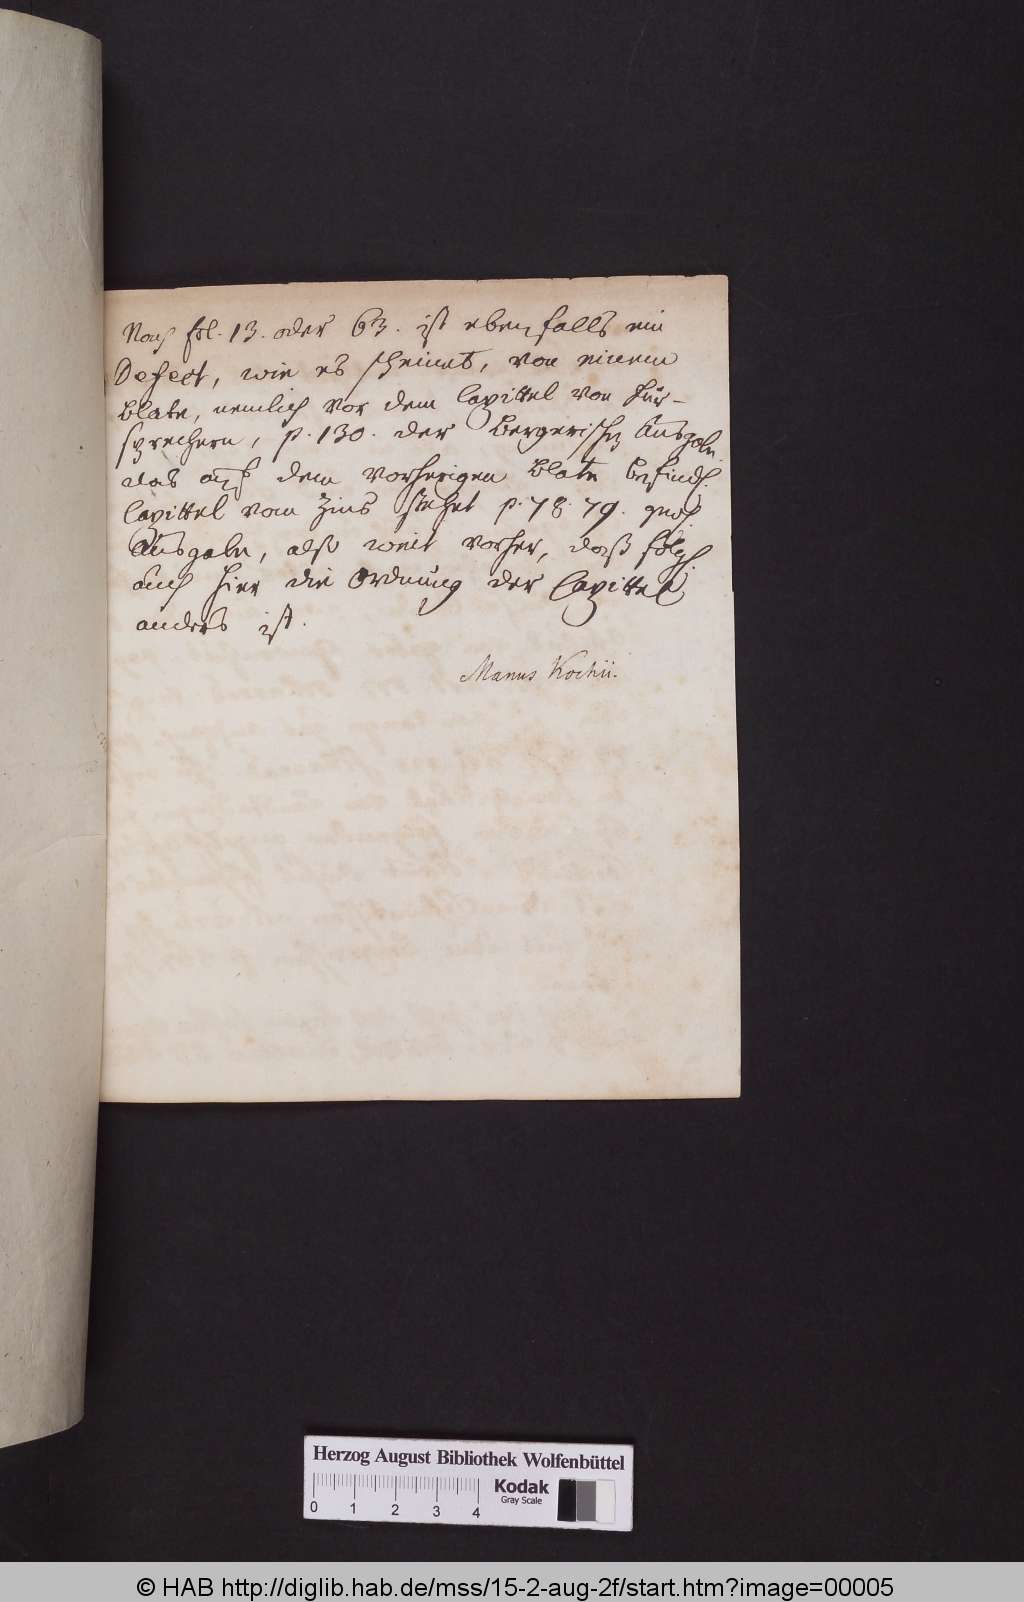 Nach fol. 13. oder 63. ist ebenfalls ein
Defect, wie es scheinet, von einem
Blate, nemlich vor dem Capittel von Für-
sprechern, p. 130. der Bergerischen Ausgabe.
das auf dem vorherigen Blate befindl.
Capittel vom Zins stehet p. 78. 79. gedr.
Ausgabe, also weit vorher, daß folgl.
auch hier die Ordnung der Capittel
anders ist.
Manus Kochii.
Herzog August Bibliothek Wolfenbüttel
0 1 2 3 4
Kodak
Gray Scale
© HAB http://diglib.hab.de/mss/15-2-aug-2f/start.htm?image=00005